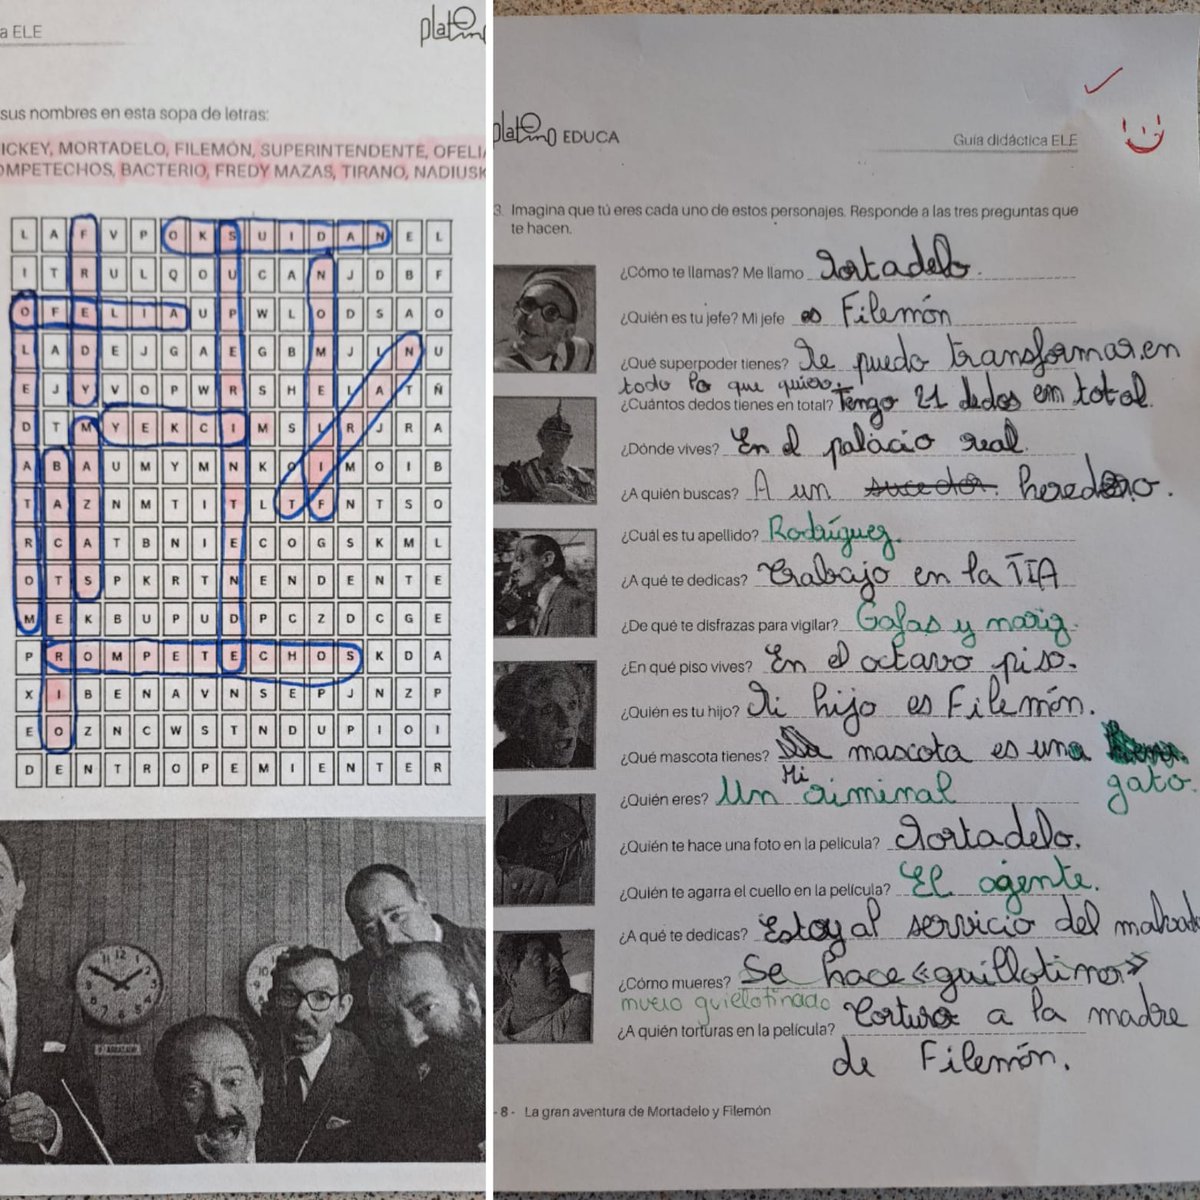 a ELE
platino
sus nombres en esta sopa de letras:
ICKEY, MORTADELO, FILEMÓN, SUPERINTENDENTE, OFELIA
OMPETECHOS, BACTERIO, FREDY MAZAS, TIRANO, NADIUSK
L A F V P O K S U I D A N E L
I T R U L Q O U C A N J D B F
O F E L I A U P W L O D S A O
L A D E J G A E G B M J N U
E J Y V O P W R S H E L A T Ñ
D T M Y E K C I M S L R J R A
A B A U M Y M N K O I M O I B
T A Z N M T I T L T F N T S O
R C A T B N I E C O G S K M L
O T S P K R T N E N D E N T E
M E K B U P U D P C Z D C G E
P R O M P E T E C H O S K D A
X I B E N A V N S E P J N Z P
E O Z N C W S T N D U P I O I
D E N T R O P E M I E N T E R
platino EDUCA
Guía didáctica ELE
3. Imagina que tú eres cada uno de estos personajes. Responde a las tres preguntas que
te hacen.
¿Cómo te llamas? Me llamo Mortadelo.
¿Quién es tu jefe? Mi jefe es Filemón
¿Qué superpoder tienes? Me puedo transformar en
todo lo que quiero.
¿Cuántos dedos tienes en total? Tengo 21 dedos em total.
¿Dónde vives? En el palacio real.
¿A quién buscas? A un sucedor. heredero.
¿Cuál es tu apellido? Rodríguez.
¿A qué te dedicas? Trabajo en la TIA
¿De qué te disfrazas para vigilar? Gafas y nariz.
¿En qué piso vives? En el octavo piso.
¿Quién es tu hijo? Mi hijo es Filemón.
¿Qué mascota tienes? Mi mascota es una
gato.
¿Quién eres? Un criminal
¿Quién te hace una foto en la película? Mortadelo.
¿Quién te agarra el cuello en la película? El agente.
¿A qué te dedicas? Estoy al servicio del malvado
¿Cómo mueres? Se hace «guillotinar»
muero guillotinado
¿A quién torturas en la película? Torturo a la madre
de Filemón.
- 8 - La gran aventura de Mortadelo y Filemón